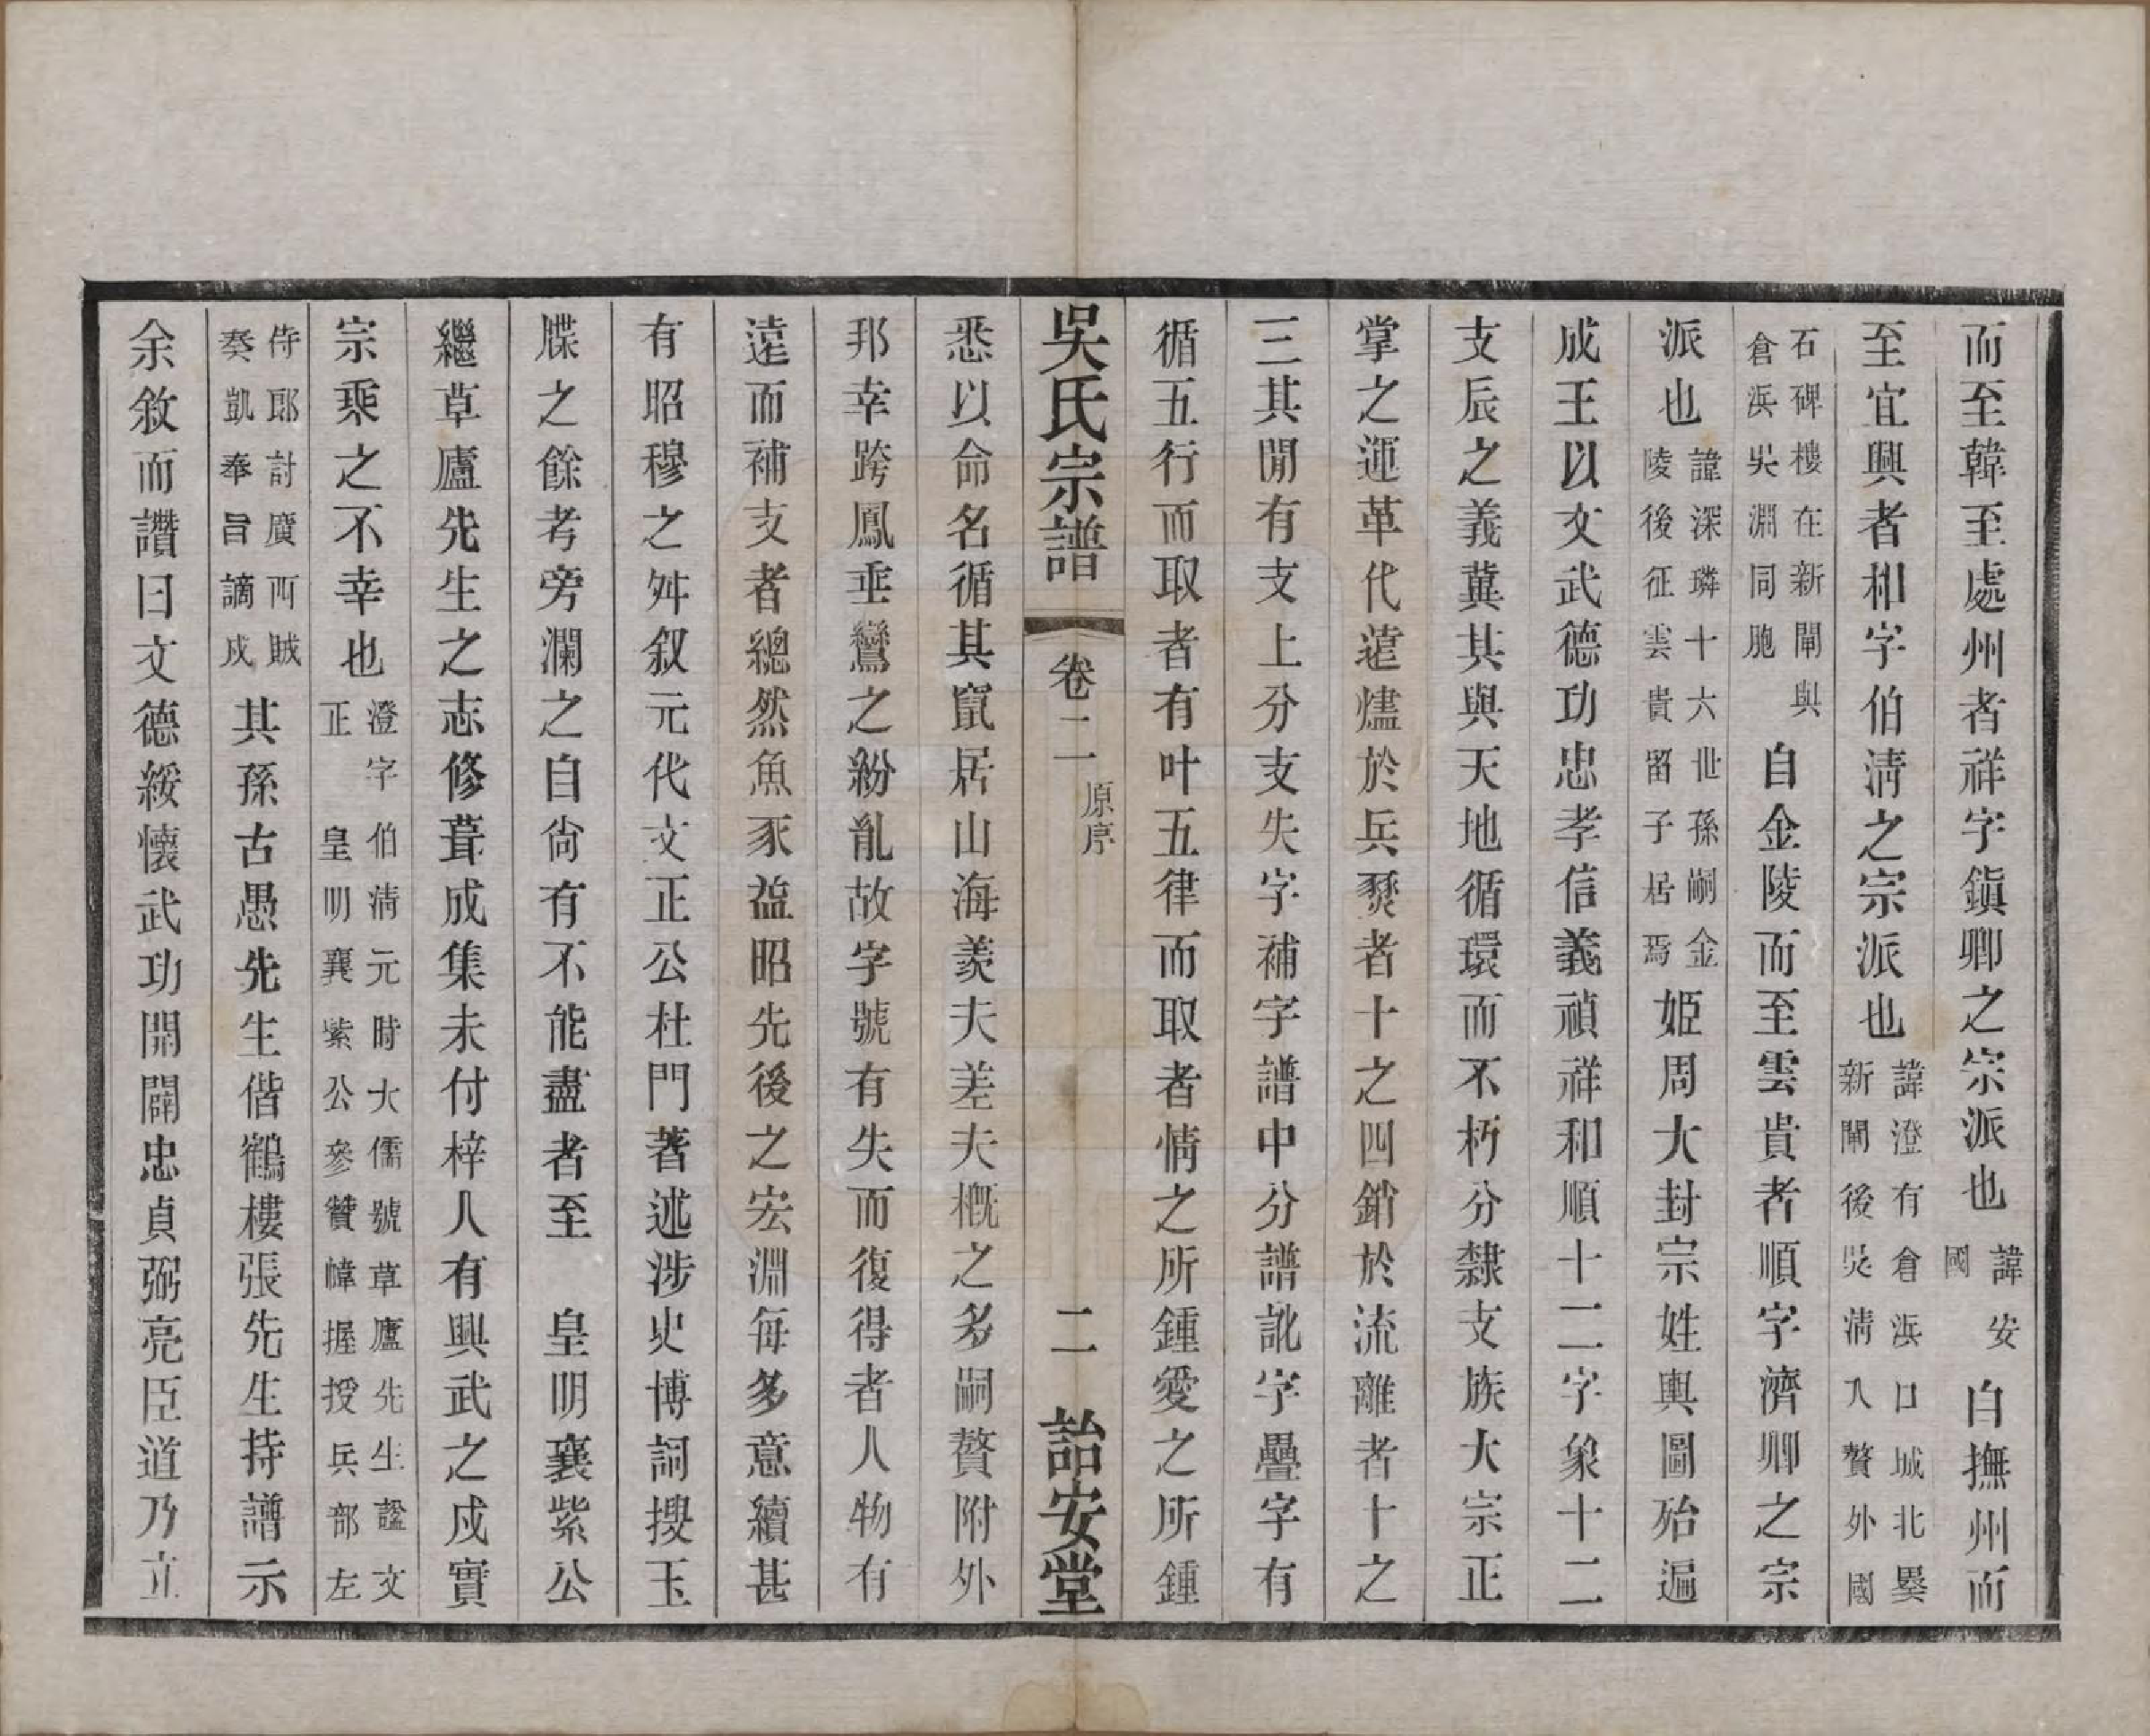 而至韓至處州者祥字鎮卿之宗派也諱安國自撫州而
至宜興者相字伯淸之宗派也諱澄有倉浜口城北婁新閘後吳淸入贅外國
石碑樓在新閘與倉浜吳淵同胞自金陵而至雲貴者順字濟卿之宗
派也諱深璘十六世孫嗣金陵後征雲貴留子居焉姬周大封宗姓輿圖殆遍
成王以文武德功忠孝信義禎祥和順十二字象十二
支辰之義冀其與天地循環而不朽分隸支族大宗正
掌之運革代遠燼於兵燹者十之四銷於流離者十之
三其閒有支上分支失字補字譜中分譜訛字疊字有
循五行而取者有叶五律而取者情之所鍾愛之所鍾
吳氏宗譜 卷二 原序 二 詒安堂
悉以命名循其竄居山海羨夫差夫槪之多嗣贅附外
邦幸跨鳳乖鸞之紛亂故字號有失而復得者人物有
遠而補支者總然魚豕益昭先後之宏淵每多意續甚
有昭穆之舛叙元代文正公杜門著述涉史博詞搜玉
牒之餘考旁瀾之自尙有不能盡者至 皇明襄紫公
繼草廬先生之志修葺成集未付梓人有興武之戍實
宗乘之不幸也澄字伯淸元時大儒號草廬先生諡文正 皇明襄紫公參贊幃握授兵部左
侍郎討廣西賊奏凱奉旨謫戍其孫古愚先生偕鶴樓張先生持譜示
余敘而讚曰文德綏懷武功開闢忠貞弼亮臣道乃立